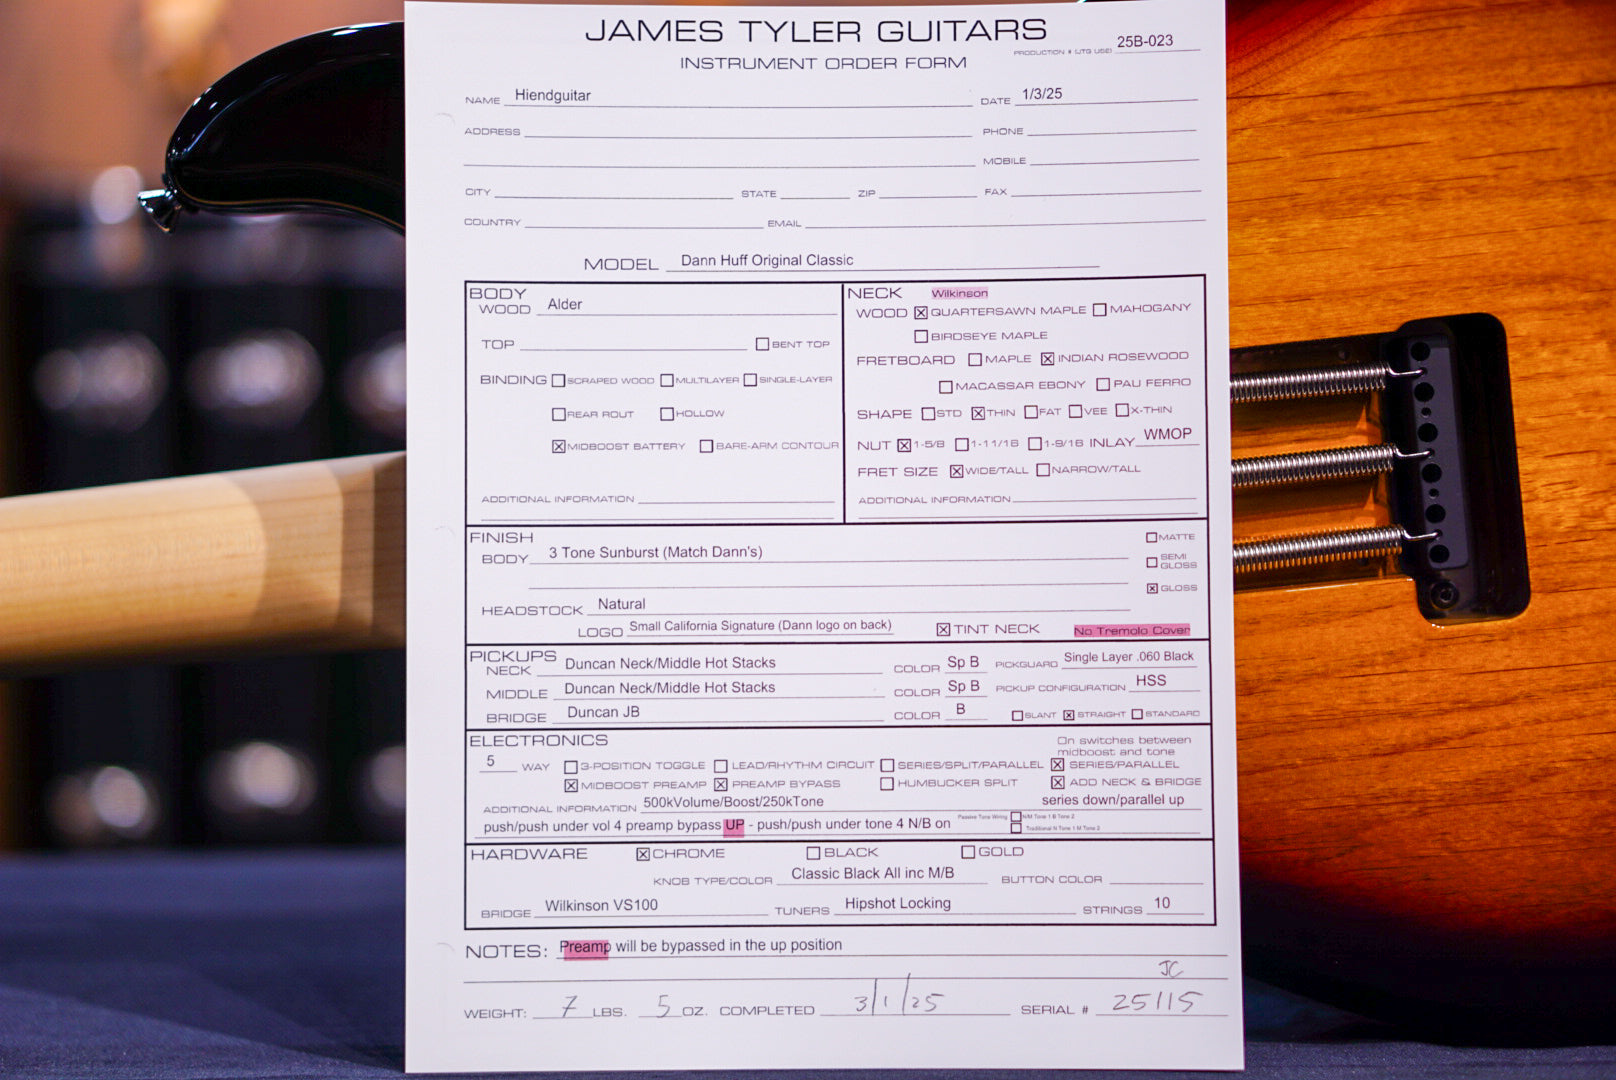 JAMES TYLER GUITARS
PRODUCTION # (JTG USE) 25B-023
INSTRUMENT ORDER FORM
NAME Hiendguitar DATE 1/3/25
ADDRESS PHONE
MOBILE
CITY STATE ZIP FAX
COUNTRY EMAIL
MODEL Dann Huff Original Classic
BODY
WOOD Alder
TOP ☐ BENT TOP
BINDING ☐ SCRAPED WOOD ☐ MULTILAYER ☐ SINGLE-LAYER
☐ REAR ROUT ☐ HOLLOW
☒ MIDBOOST BATTERY ☐ BARE-ARM CONTOUR
ADDITIONAL INFORMATION
NECK Wilkinson
WOOD ☒ QUARTERSAWN MAPLE ☐ MAHOGANY
☐ BIRDSEYE MAPLE
FRETBOARD ☐ MAPLE ☒ INDIAN ROSEWOOD
☐ MACASSAR EBONY ☐ PAU FERRO
SHAPE ☐ STD ☒ THIN ☐ FAT ☐ VEE ☐ X-THIN
NUT ☒ 1-5/8 ☐ 1-11/16 ☐ 1-9/16 INLAY WMOP
FRET SIZE ☒ WIDE/TALL ☐ NARROW/TALL
ADDITIONAL INFORMATION
FINISH
BODY 3 Tone Sunburst (Match Dann's)
☐ MATTE
☐ SEMI GLOSS
☒ GLOSS
HEADSTOCK Natural
LOGO Small California Signature (Dann logo on back) ☒ TINT NECK No Tremolo Cover
PICKUPS
NECK Duncan Neck/Middle Hot Stacks COLOR Sp B PICKGUARD Single Layer .060 Black
MIDDLE Duncan Neck/Middle Hot Stacks COLOR Sp B PICKUP CONFIGURATION HSS
BRIDGE Duncan JB COLOR B ☐ SLANT ☒ STRAIGHT ☐ STANDARD
ELECTRONICS
On switches between
midboost and tone
5 WAY ☐ 3-POSITION TOGGLE ☐ LEAD/RHYTHM CIRCUIT ☐ SERIES/SPLIT/PARALLEL ☒ SERIES/PARALLEL
☒ MIDBOOST PREAMP ☒ PREAMP BYPASS ☐ HUMBUCKER SPLIT ☒ ADD NECK & BRIDGE
ADDITIONAL INFORMATION 500kVolume/Boost/250kTone series down/parallel up
push/push under vol 4 preamp bypass UP - push/push under tone 4 N/B on Passive Tone Wiring ☐ N/M Tone 1 B Tone 2
☐ Traditional N Tone 1 M Tone 2
HARDWARE ☒ CHROME ☐ BLACK ☐ GOLD
KNOB TYPE/COLOR Classic Black All inc M/B BUTTON COLOR
BRIDGE Wilkinson VS100 TUNERS Hipshot Locking STRINGS 10
NOTES: Preamp will be bypassed in the up position
JC
WEIGHT: 7 LBS. 5 OZ. COMPLETED 3/1/25 SERIAL # 25115